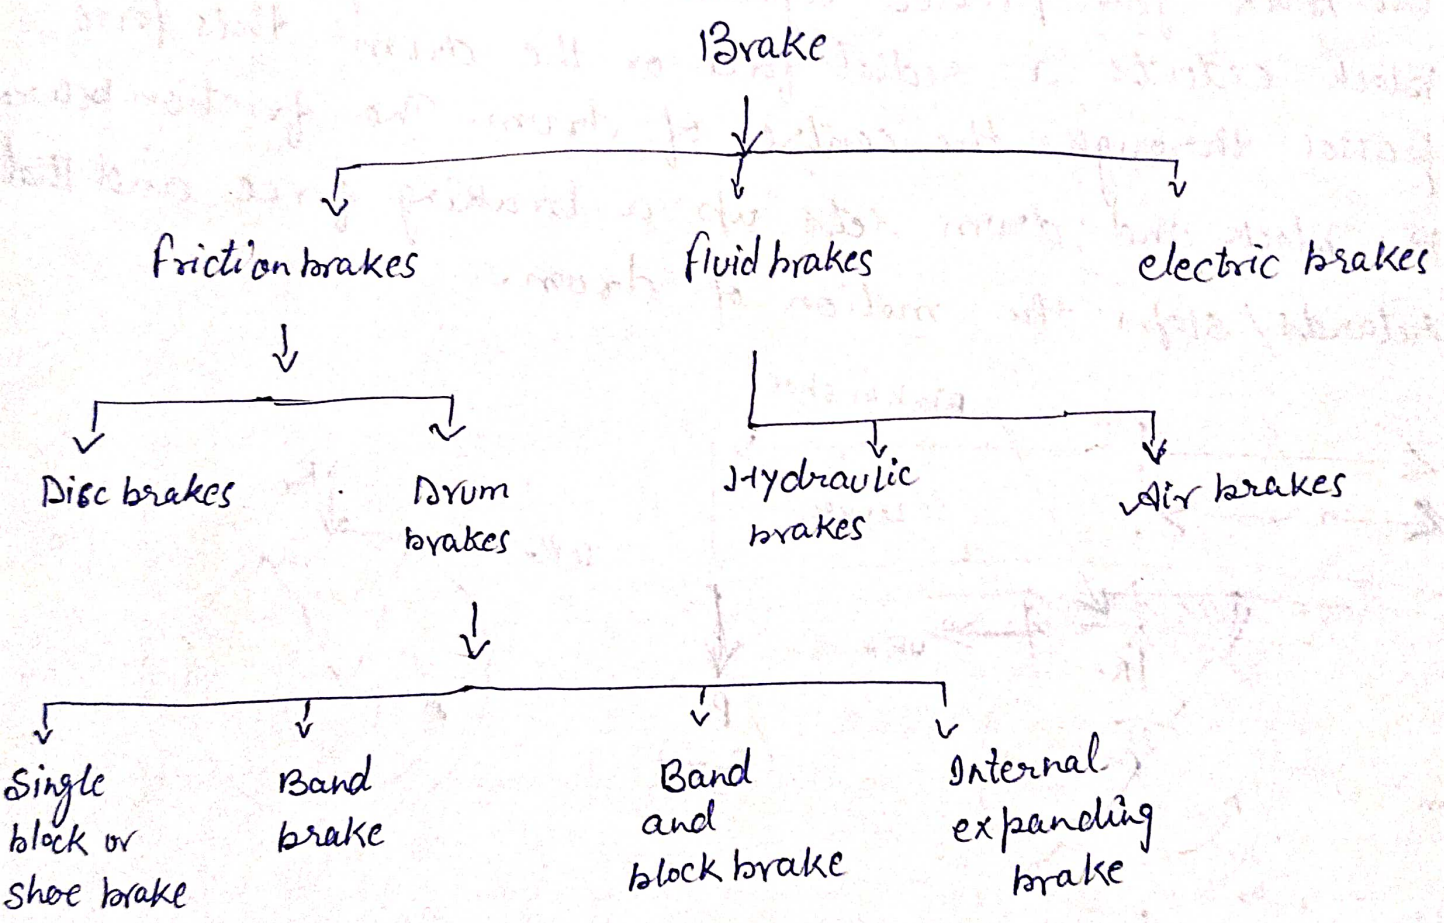 Brake
friction brakes
fluid brakes
electric brakes
Disc brakes
Drum
brakes
Hydraulic
brakes
Air brakes
Single
block or
shoe brake
Band
brake
Band
and
block brake
Internal
expanding
brake